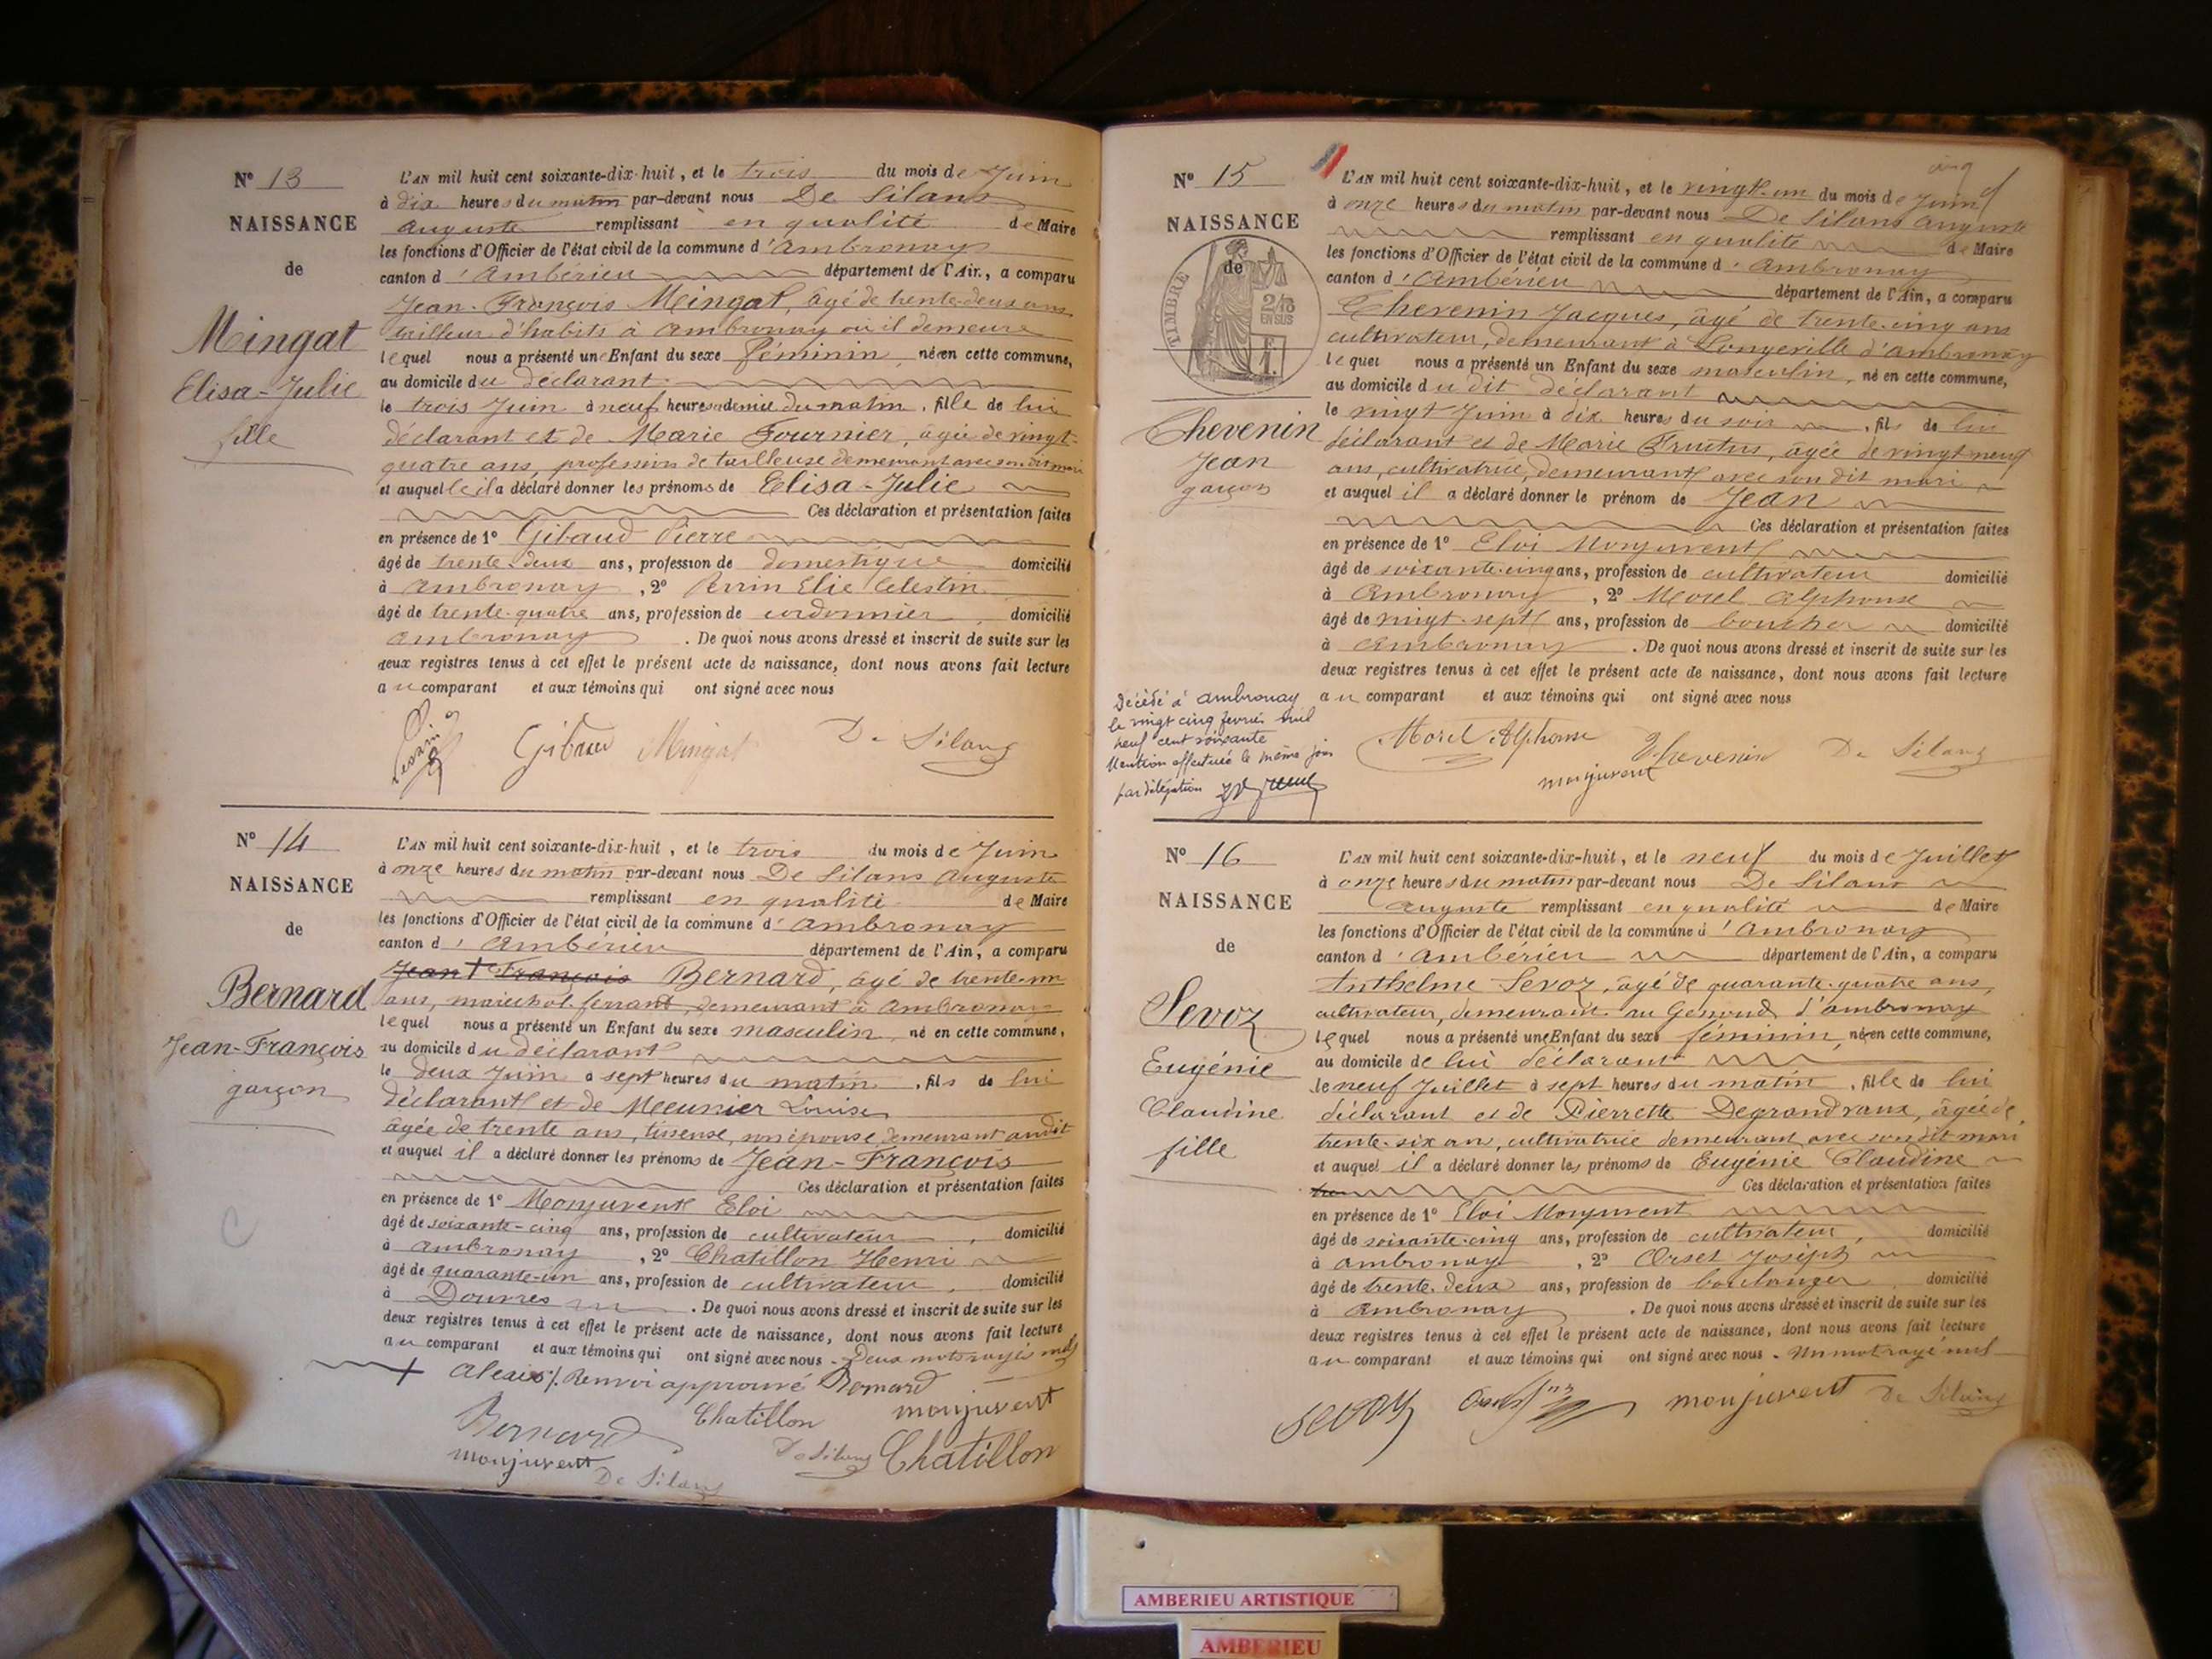 N° 13
NAISSANCE
de
Mingat
Elisa-Julie
fille
L'AN mil huit cent soixante-dix-huit, et le trois du mois de Juin
à dix heures du matin par-devant nous De Silans
Auguste remplissant en qualité de Maire
les fonctions d'Officier de l'état civil de la commune d'Ambronay
canton d'Ambérieu département de l'Air., a comparu
Jean-François Mingat, âgé de trente-deux ans
tailleur d'habits à Ambronay où il demeure
lequel nous a présenté une Enfant du sexe féminin, née en cette commune,
au domicile du déclarant
le trois Juin à neuf heures et demie du matin, fille de lui
déclarant et de Marie Fournier, âgée de vingt-
quatre ans, profession de tailleuse demeurant avec son dit mari
et auquelle il a déclaré donner les prénoms de Elisa-Julie
Ces déclaration et présentation faites
en présence de 1° Gibaud Pierre
âgé de trente-deux ans, profession de domestique domicilié
à Ambronay, 2° Perrin Elie Celestin
âgé de trente-quatre ans, profession de cordonnier, domicilié
Ambronay. De quoi nous avons dressé et inscrit de suite sur les
deux registres tenus à cet effet le présent acte de naissance, dont nous avons fait lecture
au comparant et aux témoins qui ont signé avec nous
Perrin Gibaud Mingat De Silans
N° 14
NAISSANCE
de
Bernard
Jean-François
garçon
L'AN mil huit cent soixante-dix-huit, et le trois du mois de Juin
à onze heures du matin par-devant nous De Silans Auguste
remplissant en qualité de Maire
les fonctions d'Officier de l'état civil de la commune d'Ambronay
canton d'Ambérieu département de l'Ain, a comparu
Jean + François Bernard, âgé de trente-un
ans, maréchal ferrant, demeurant à Ambronay
lequel nous a présenté un Enfant du sexe masculin, né en cette commune,
au domicile du déclarant
le deux Juin à sept heures du matin, fils de lui
déclarant et de Meunier Louise
âgée de trente ans, tisseuse, son épouse demeurant audit
et auquel il a déclaré donner les prénoms de Jean-François
Ces déclaration et présentation faites
en présence de 1° Monjuvent Eloi
âgé de soixante-cinq ans, profession de cultivateur, domicilié
à Ambronay, 2° Chatillon Henri
âgé de quarante-un ans, profession de cultivateur, domicilié
à Douvres. De quoi nous avons dressé et inscrit de suite sur les
deux registres tenus à cet effet le présent acte de naissance, dont nous avons fait lecture
au comparant et aux témoins qui ont signé avec nous - Deux mots rayés nuls
+ Alexis /. Renvoi approuvé Bernard
Bernard Chatillon monjuvent
monjuvent De Silans De Silans Chatillon
N° 15
NAISSANCE
de
TIMBRE
2/10
EN SUS
Chevenin
Jean
garçon
Décédé à Ambronay
le vingt cinq février mil
neuf cent soixante
Mention effectuée le même jour
par délégation
cinq
L'AN mil huit cent soixante-dix-huit, et le vingt-un du mois de Juin
à onze heures du matin par-devant nous De Silans Auguste
remplissant en qualité de Maire
les fonctions d'Officier de l'état civil de la commune d'Ambronay
canton d'Ambérieu département de l'Ain, a comparu
Chevenin Jacques, âgé de trente-cinq ans
cultivateur, demeurant à Longeville d'Ambronay
lequel nous a présenté un Enfant du sexe masculin, né en cette commune,
au domicile du dit déclarant
le vingt Juin à dix heures du soir, fils de lui
déclarant et de Marie Fructus, âgée de vingt-neuf
ans, cultivatrice, demeurant avec son dit mari
et auquel il a déclaré donner le prénom de Jean
Ces déclaration et présentation faites
en présence de 1° Eloi Monjuvent
âgé de soixante-cinq ans, profession de cultivateur domicilié
à Ambronay, 2° Morel Alphonse
âgé de vingt-sept ans, profession de boucher domicilié
à Ambronay. De quoi nous avons dressé et inscrit de suite sur les
deux registres tenus à cet effet le présent acte de naissance, dont nous avons fait lecture
au comparant et aux témoins qui ont signé avec nous
Morel Alphonse Chevenin De Silans
monjuvent
N° 16
NAISSANCE
de
Sevoz
Eugénie
Claudine
fille
L'AN mil huit cent soixante-dix-huit, et le neuf du mois de Juillet
à onze heures du matin par-devant nous De Silans
Auguste remplissant en qualité de Maire
les fonctions d'Officier de l'état civil de la commune d'Ambronay
canton d'Ambérieu département de l'Ain, a comparu
Anthelme Sevoz, âgé de quarante-quatre ans,
cultivateur, demeurant au Genoud d'Ambronay
lequel nous a présenté une Enfant du sexe féminin, née en cette commune,
au domicile de lui déclarant
le neuf Juillet à sept heures du matin, fille de lui
déclarant et de Pierrette Degrandvaux, âgée de
trente-six ans, cultivatrice demeurant avec son dit mari
et auquel il a déclaré donner les prénoms de Eugénie Claudine
Ces déclaration et présentation faites
en présence de 1° Eloi Monjuvent
âgé de soixante-cinq ans, profession de cultivateur, domicilié
à Ambronay, 2° Orset Joseph
âgé de trente-deux ans, profession de boulanger domicilié
à Ambronay. De quoi nous avons dressé et inscrit de suite sur les
deux registres tenus à cet effet le présent acte de naissance, dont nous avons fait lecture
au comparant et aux témoins qui ont signé avec nous - Un mot rayé nul
sevoz Orset monjuvent De Silans
AMBERIEU ARTISTIQUE
AMBERIEU